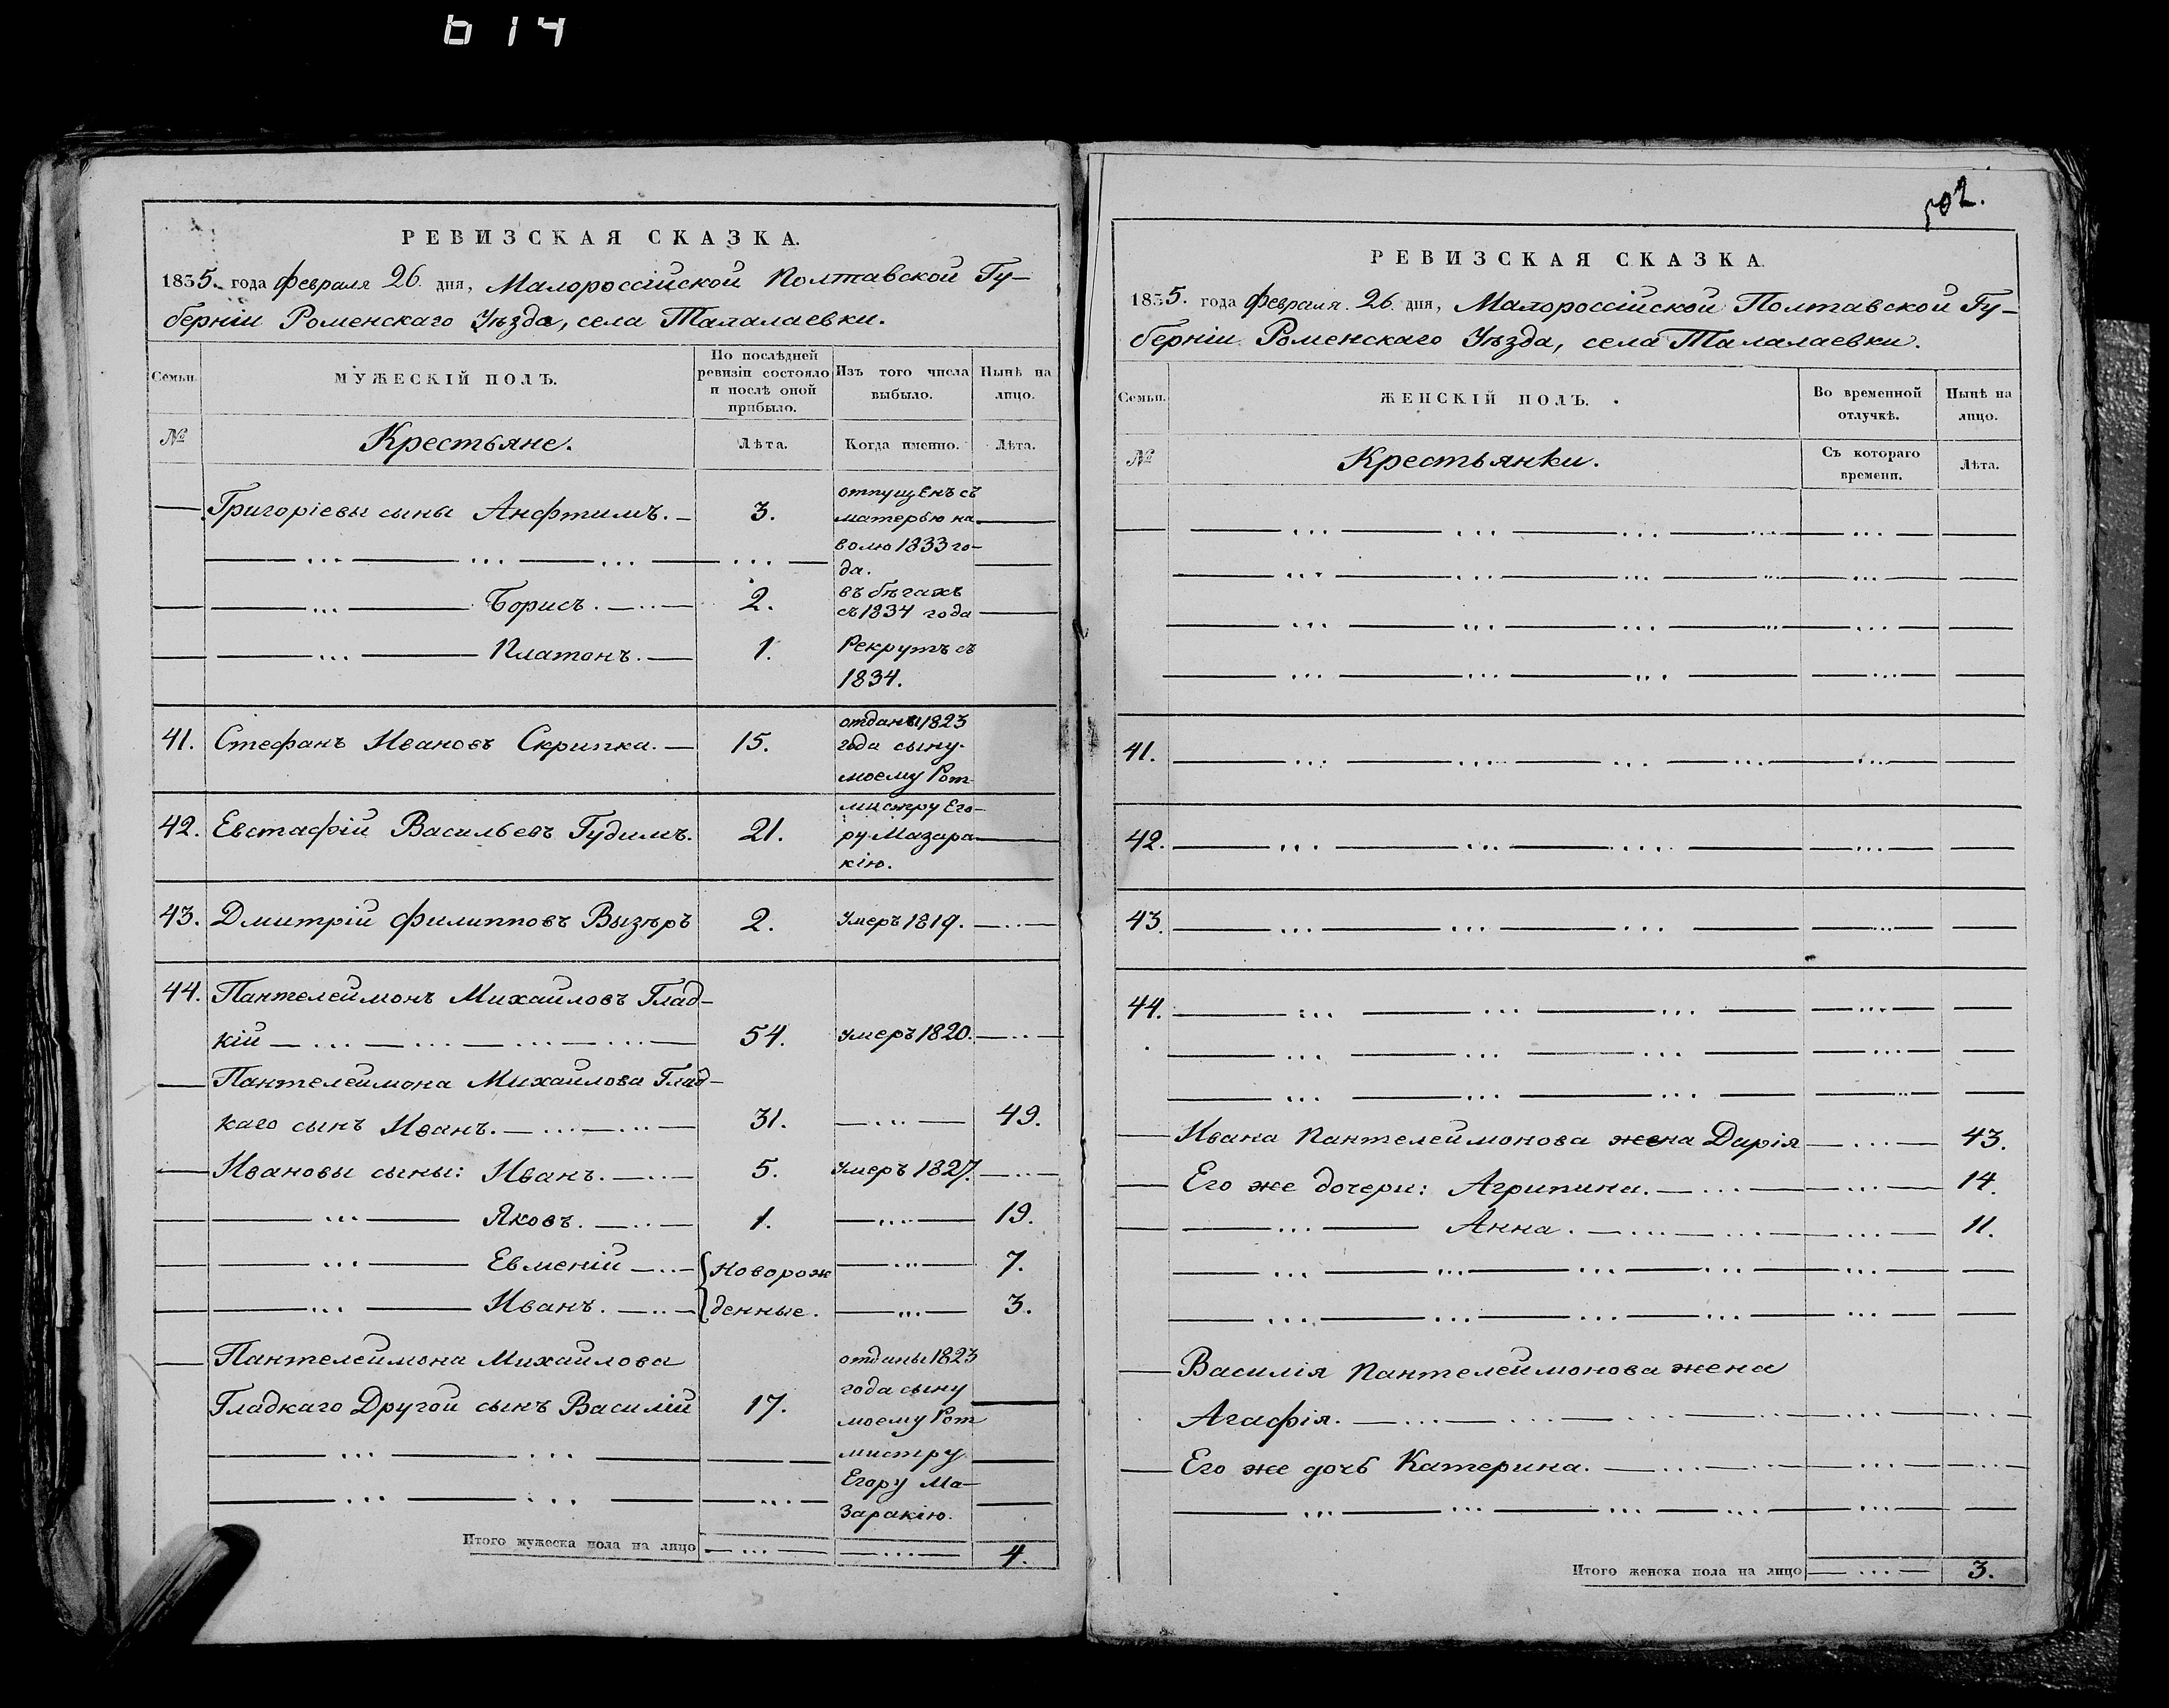 614
РЕВИЗСКАЯ СКАЗКА.
1835. года Февраля 26. дня, Малороссійской Полтавской Гу-
берніи Роменскаго Уѣзда, села Талалаевки.
Семьи.
МУЖЕСКІЙ ПОЛЪ.
По послѣдней
ревизіи состояло
и послѣ оной
прибыло.
Изъ того числа
выбыло.
Нынѣ на
лицо.
№
Крестьяне.
Лѣта.
Когда именно.
Лѣта.
Григоріевы сыны Анфтимъ. 3.
отпущенъ съ
матерью на
волю 1833 го-
да.
Борисъ. 2.
въ бѣгахъ
съ 1834 года
Платонъ. 1.
Рекрутъ съ
1834.
41. Стефанъ Ивановъ Скрипка. 15.
отданы 1823
года сыну
моему Рот-
42. Евстафій Васильевъ Гудимъ. 21.
мистру Его-
ру Мазара-
кію.
43. Дмитрій Филипповъ Вызѣръ 2. Умеръ 1819.
44. Пантелеймонъ Михайловъ Глад-
кій 54. Умеръ 1820.
Пантелеймона Михайлова Глад-
каго сынъ Иванъ. 31. 49.
Ивановы сыны: Иванъ. 5. Умеръ 1827.
Яковъ. 1. 19.
Евменій 7.
Новорож
Иванъ. 3.
денные.
Пантелеймона Михайлова
Гладкаго Другой сынъ Василій 17.
отданы 1823
года сыну
моему Рот
мистру
Егору Ма-
заракію.
Итого мужеска пола на лицо 4.
502.
РЕВИЗСКАЯ СКАЗКА.
1835. года Февраля. 26. дня, Малороссійской Полтавской Гу-
берніи Роменскаго Уѣзда, села Талалаевки.
Семьи.
ЖЕНСКІЙ ПОЛЪ.
Во временной
отлучкѣ.
Нынѣ на
лицо.
№
Крестьянки.
Съ котораго
времени.
Лѣта.
41.
42.
43.
44.
Ивана Пантелеймонова жена Дарія 43.
Его же дочери: Агрипина. 14.
Анна. 11.
Василія Пантелеймонова жена
Агафія.
Его же дочь Катерина.
Итого женска пола на лицо 3.